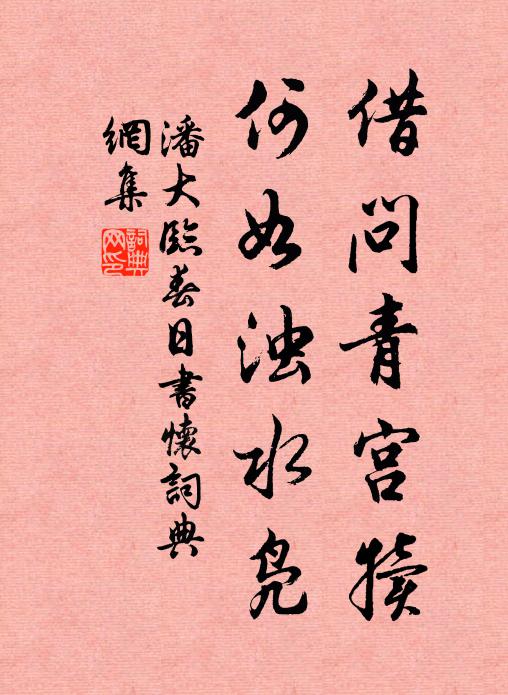 借问青宫犊
何如浊水凫
潘大临春日书怀词典
網集
詞典網印